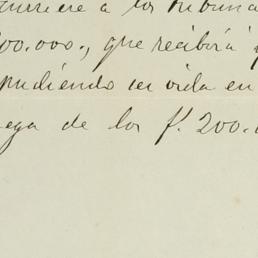 a los tribuna
00.000., que recibirá
pudiendo en vida en
ega de los f. 200.